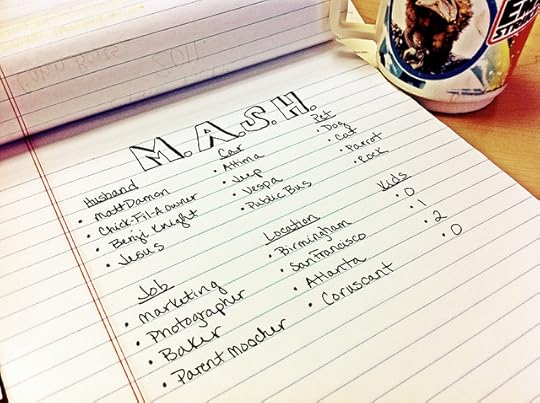 M.A.S.H.
Husband
• Matt Damon
• Chick-Fil-A owner
• Benji Knight
• Jesus
Car
• Altima
• Jeep
• Vespa
• Public Bus
Pet
• Dog
• Cat
• Parrot
• Rock
Job
• Marketing
• Photographer
• Baker
• Parent Moocher
Location
• Birmingham
• San Francisco
• Atlanta
• Coruscant
Kids
• 0
• 1
• 2
• 0